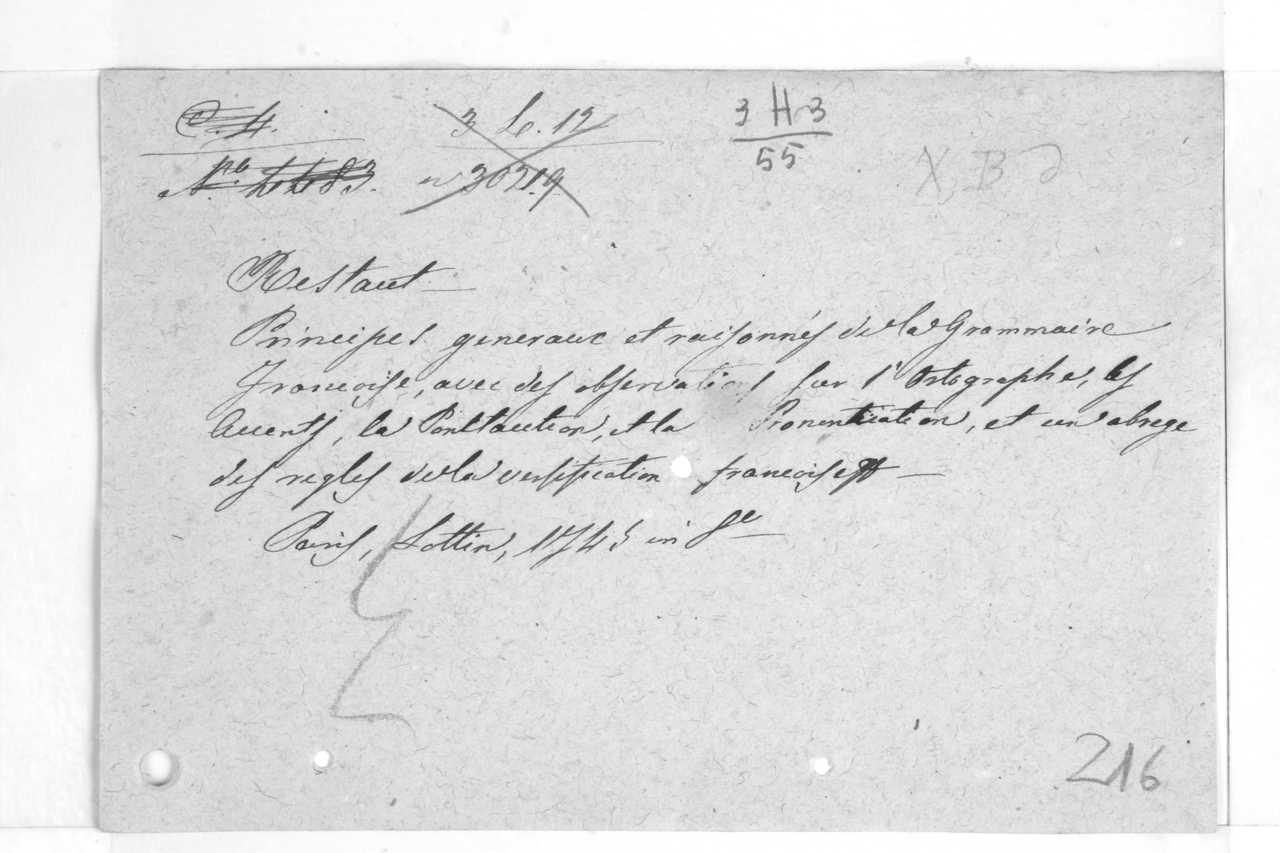 C. 4. 3 L. 12 3 H 3
55
N.ro 4483. n 30219 X B
Restaut
Principes generaux et raisonnés de la Grammaire
francoise, avec des observations sur l'Ortographe, les
Accents, la Ponctuation, et la Pronontiation, et un abrege
des regles de la versification francoise
Paris, Lottin, 1745 in 8e
216